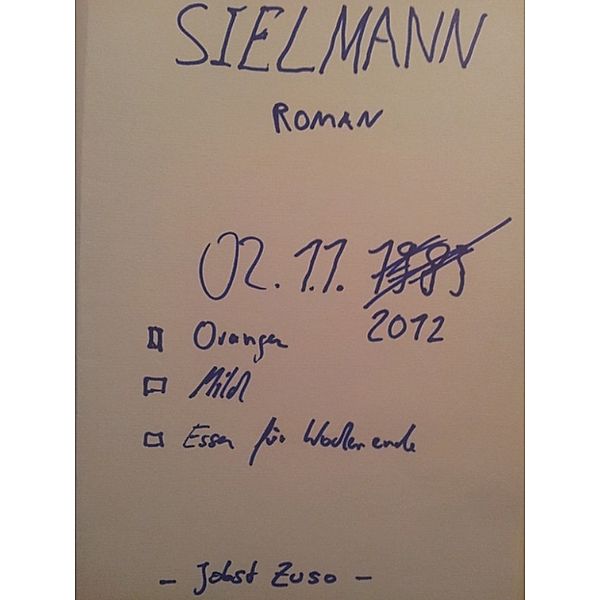 SIELMANN
ROMAN
02.11. 1985
2012
Orangen
Milch
Essen für Wochenende
- Jobst Zuso -